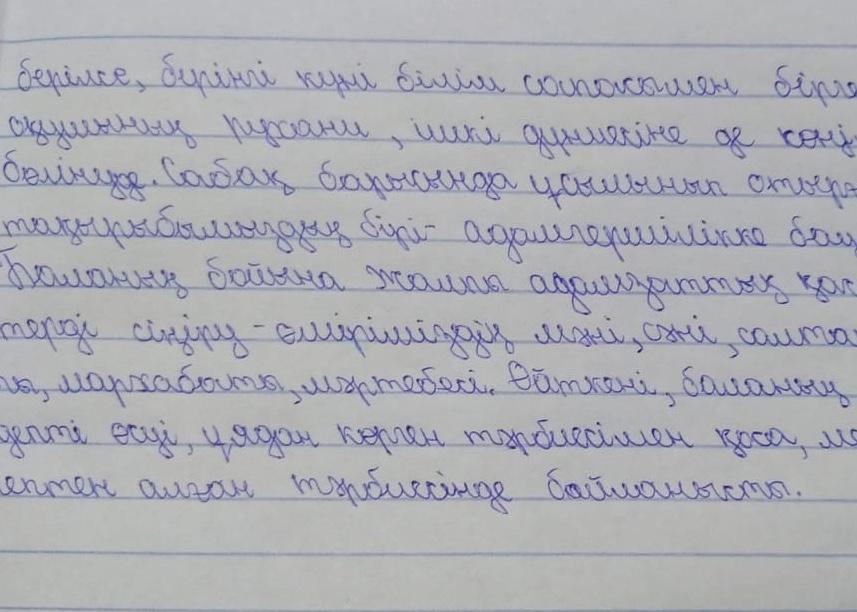 берілсе, бүгінгі күні білім сапасымен бірге
оқушының рухани, ішкі дүниесіне де көңі
бөлінуде. Сабақ барысында ұсынып отырғ
тақырыбымыздың бірі - адамгершілікке бау
Баланың бойына жалпы адамзаттық қас
терді сіңіру - өміріміздің мәні, сәні, салта
ты, мархабаты, мәртебесі. Өйткені, баланың
депті өсуі, ұядан көрген тәрбиесімен қоса, ме
ептен алған тәрбиесінде байланысты.